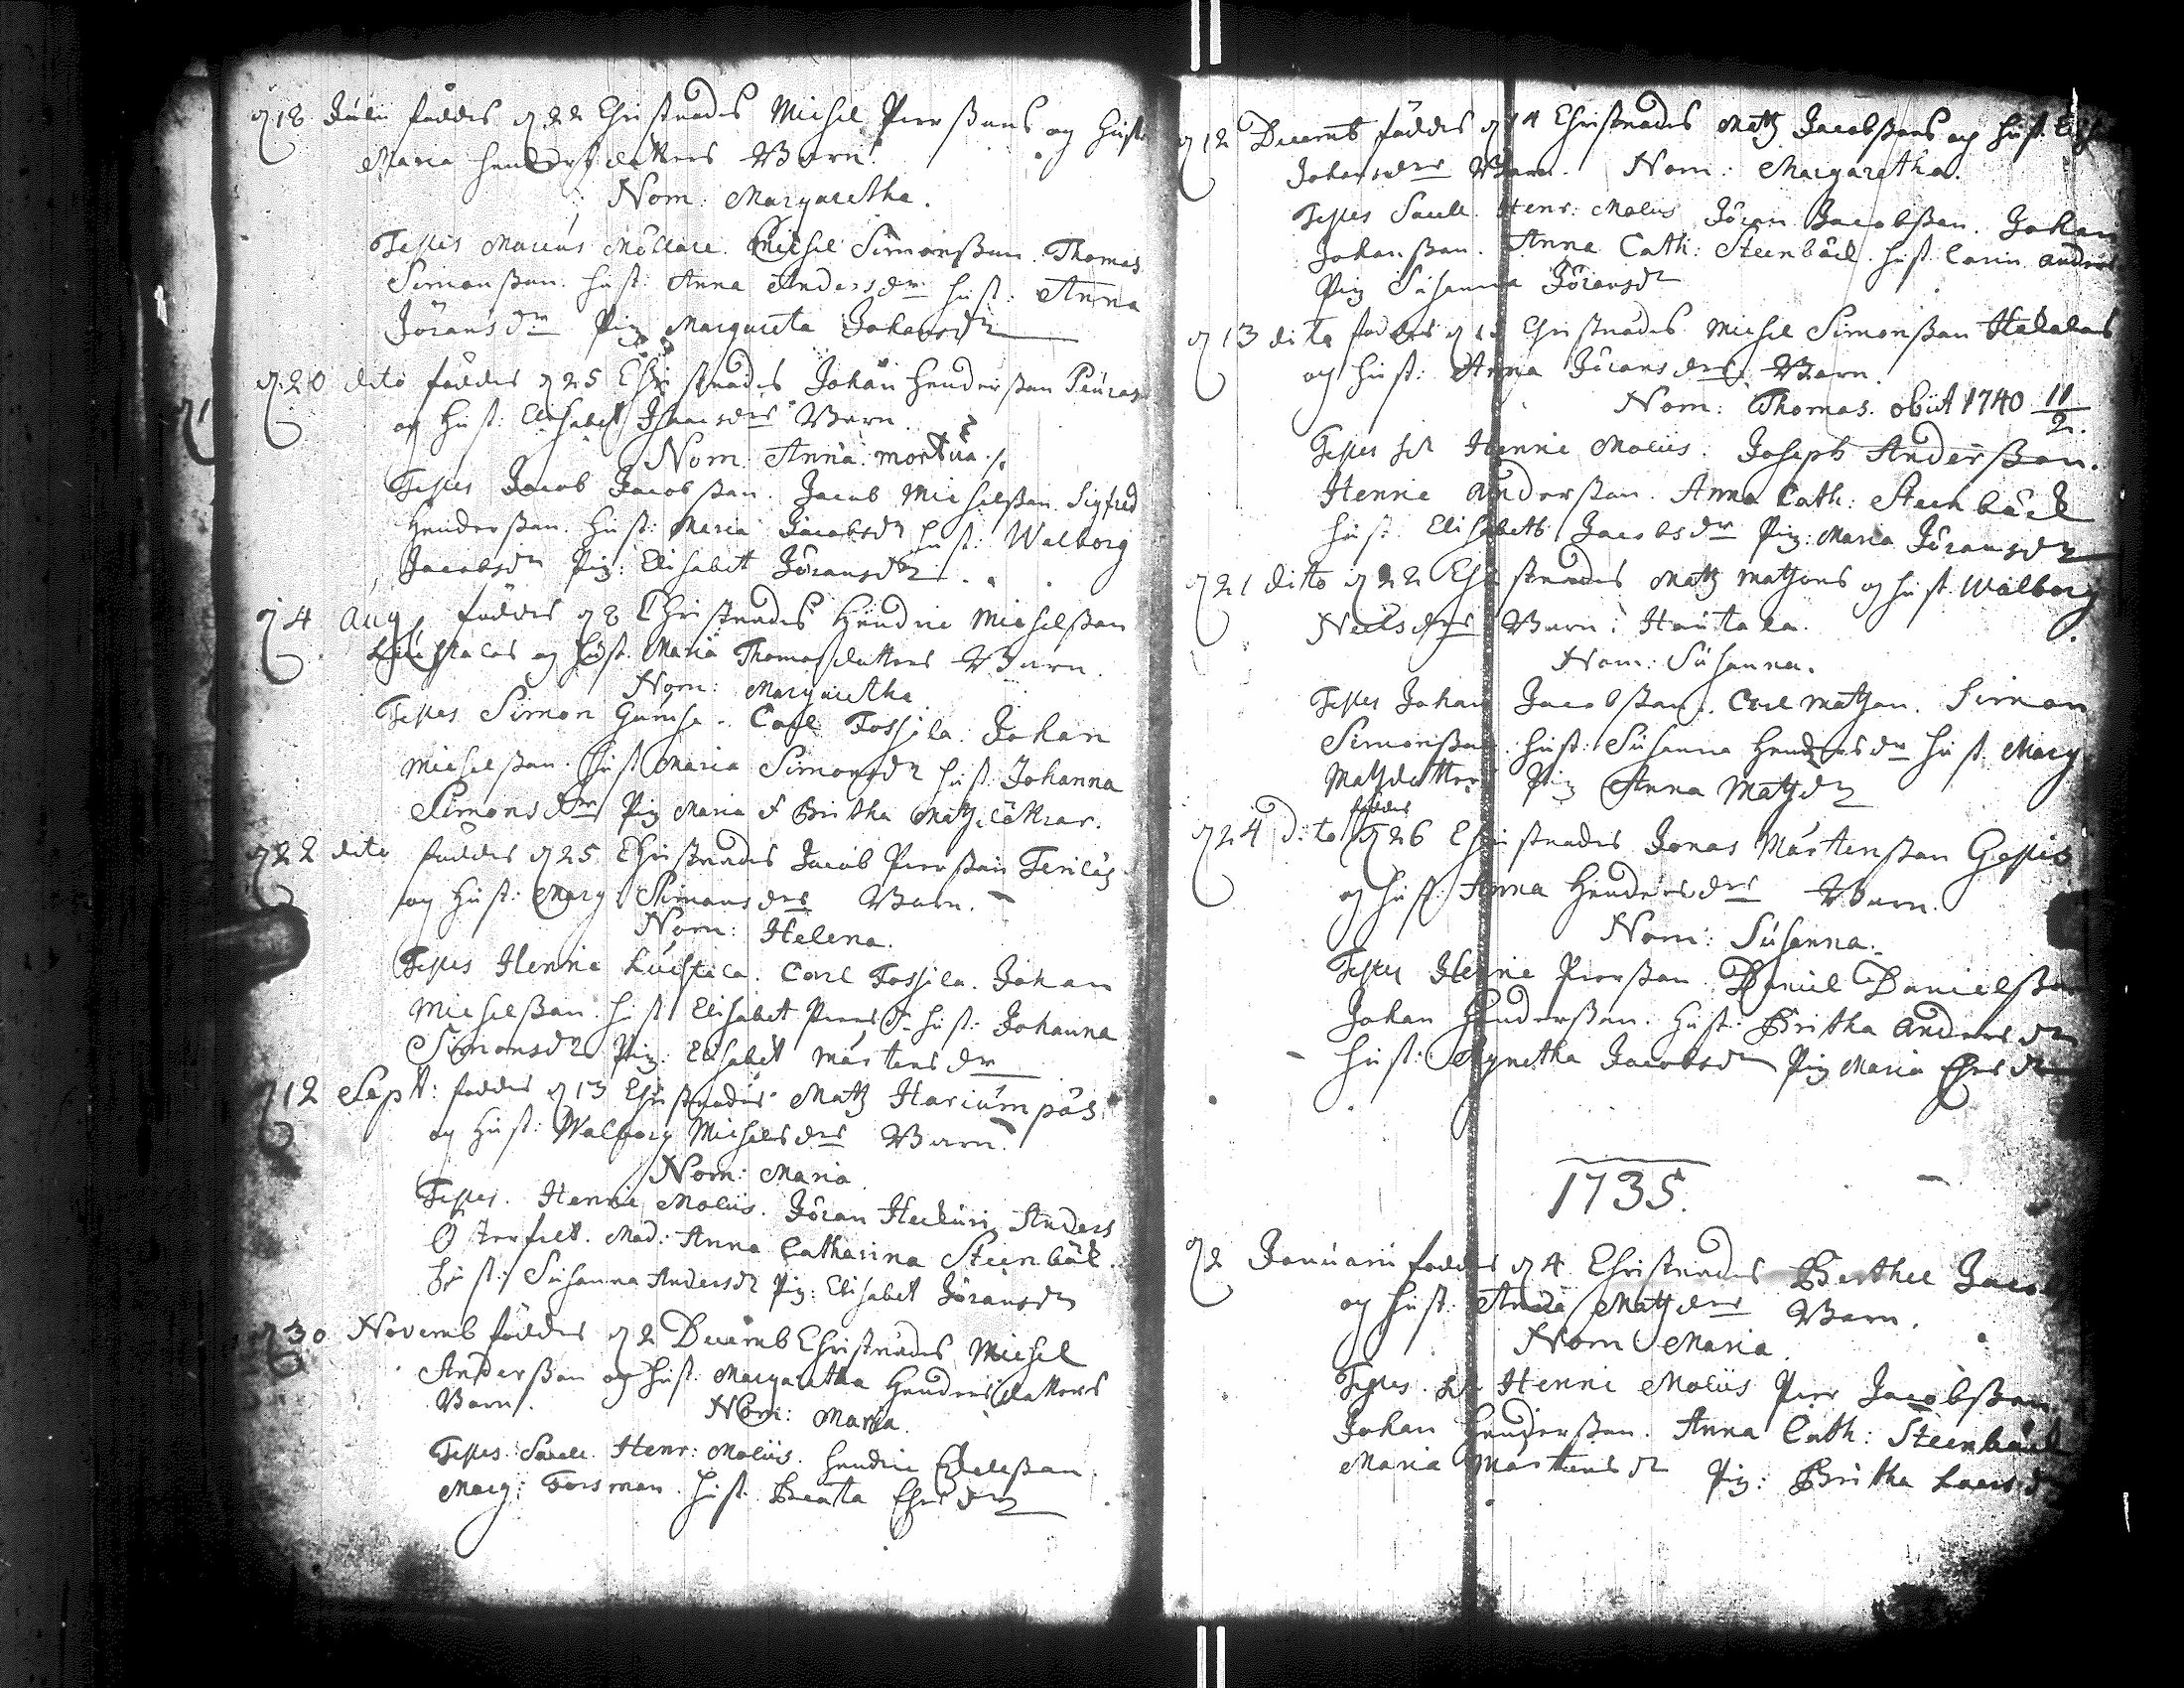 d 18 Julii föddes d 22 Christnades Michel Peerßons og hust:
Maria Hendersdatters Barn.
Nom: Margaretha.
Testes Marcus Möllare. Michel Simonßon. Thomas
Simonßon. hust: Anna Andersdr hust: Anna
Jöransdr Pig Margareta Johansdr
d. 20 dito föddes d 25 Christnades Johan Henderßon Peuras
og Hust: Elisabet Isaacsdrs Barn.
Nom. Anna. mortua
Testes Jacob Jacobßon. Jacob Michelßon. Sigfred
Henderßon. Hust: Maria Jacobsdr hust: Walborg
Jacobsdr Pig: Elisabet Jöransdr
d 4 Aug föddes d 8 Christnades Hendric Michelßon
og Hust. Maria Thomasdatters Barn.
Nom: Margaretha
Testes Simon Gumse. Carl Tossila. Johan
Michelßon. Hust Maria Simonsdr hust: Johanna
Simonsdr Pig Maria & Britha Matz döttrar.
d 22 dito föddes d 25 Christnades Jacob Peerßon
og Hust: Marg Simonsdrs Barn.
Nom: Helena.
Testes Henric Luchtila. Carl Tossila. Johan
Michelßon. hust Elisabet Peersdr hust: Johanna
Simonsdr Pig: Elisabet Mårtensdr
d 12 Sept: föddes d 13 Christnades Matz Hariumpäs
og Hust: Walborg Michelsdrs Barn.
Nom: Maria
Testes. Henric Molius. Jöran Heckuri Anders
Österfelt. Mad: Anna Catharina Steenbäck.
hust: Susanna Andersdr Pig: Elisabet Jöransdr
d 30 Novemb föddes d 2 Decemb Christnades Michel
Anderßon og hust. Margaretha Hendersdatters
Barn. Nom: Maria.
Testes: Sacell. Henr: Molius. Hendric
Marg: Forsman. Hust. Beata
d 12 Decemb föddes d 14 Christnades Matz Jacobßons og hust.
Johansdrs Barn. Nom: Margaretha.
Testes Sacell. Henr: Molius Jöran Jacobßon. Johan
Johanßon. Anna Cath: Steenbäck. hust. Carin Anders
Pig Susanna Jöransdr
d 13 dito föddes d Christnades Michel Simonßon Hakalas
og hust: Anna Jöransdrs Barn.
Nom: Thomas. obiit 1740 11/2.
Testes Henric Molius. Joseph Anderßon.
Henric Anderßon. Anna Cath: Steenbäck
hust. Elisabeth Jacobsdr Pig: Maria Jöransdr
d 21 dito d 22 Christnades Matz Matzons og hust. Walborg
Neelsdrs Barn: Hautala.
Nom: Susanna.
Testes Johan Jacobßon. Carl Matzon. Simon
Simonßon. hust: Susanna Hendersdr hust. Marg
Matzdotter Pig Anna Matzdr
föddes
d 24 dito d 26 Christnades Jonas Mårtenßon
og hust: Anna Hendersdrs Barn.
Nom: Susanna.
Testes Henric Peerßon. Daniel Danielßon
Johan Henderßon. Hust: Britha Andersdr
hust: Agnetha Jacobsdr Pig Maria
1735.
d 2 Januarii föddes d 4 Christnades Berthel Jacob
og hust: Anna Matzdrs Barn.
Nom Maria.
Testes. Henric Molius Peer Jacobßon
Johan Henderßon. Anna Cath: Steenbäck
Maria Mårtensdr Pig: Britha Larsdr